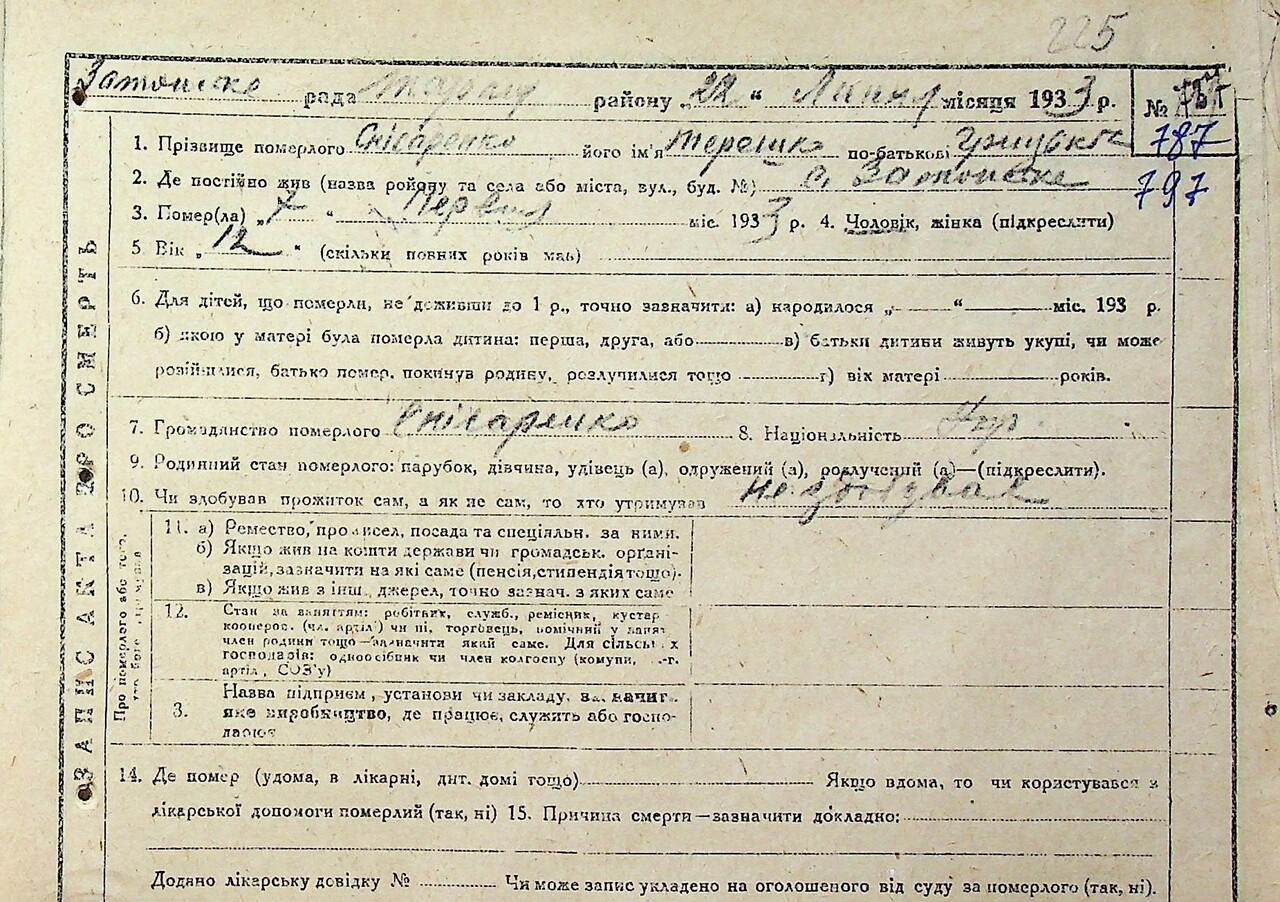 225
Затонске рада району „22“ Липня місяця 1933 р. №
787
797
1. Прізвище померлого Снісаренко його ім'я Терешко по-батькові Грицько
2. Де постійно жив (назва ройону та села або міста, вул., буд. №) с. Затонске
3. Помер(ла) „7“ Червня міс. 1933 р. 4. Чоловік, жінка (підкреслити)
5. Вік „12“ (скільки повних років мав)
6. Для дітей, що померли, не доживши до 1 р., точно зазначити: а) народилося „ “ міс. 193 р.
б) якою у матері була померла дитина: перша, друга, або в) батьки дитини живуть укупі, чи може
розійшлися, батько помер, покинув родину, розлучилися тощо г) вік матері років.
7. Громадянство померлого Снісаренко 8. Національність Укр.
9. Родинний стан померлого: парубок, дівчина, удівець (а), одружений (а), розлучений (а)—(підкреслити).
10. Чи здобував прожиток сам, а як не сам, то хто утримував не здобував
ЗАПИС АКТА ПРО СМЕРТЬ
Про померлого або того,
11. а) Ремество, промисел, посада та спеціяльн. за ними.
б) Якщо жив на кошти держави чи громадськ. орґані-
зацій, зазначити на які саме (пенсія, стипендія тощо).
в) Якщо жив з інш. джерел, точно зазнач. з яких саме
12. Стан за заняттям: робітник, служб., ремісник, кустар
кооперов. (чл. артіл) чи ні, торговець, помічний у занят
член родини тощо—зазначити який саме. Для сільських
господарів: одноосібник чи член колгоспу (комуни, с.-г.
артіл, СОЗ'у)
3. Назва підприєм, установи чи закладу, зазначит.
яке виробництво, де працює, служить або госпо-
дарює
14. Де помер (удома, в лікарні, дит. домі тощо) Якщо вдома, то чи користувався з
лікарської допомоги померлий (так, ні) 15. Причина смерти—зазначити докладно:
Додано лікарську довідку № Чи може запис укладено на оголошеного від суду за померлого (так, ні).